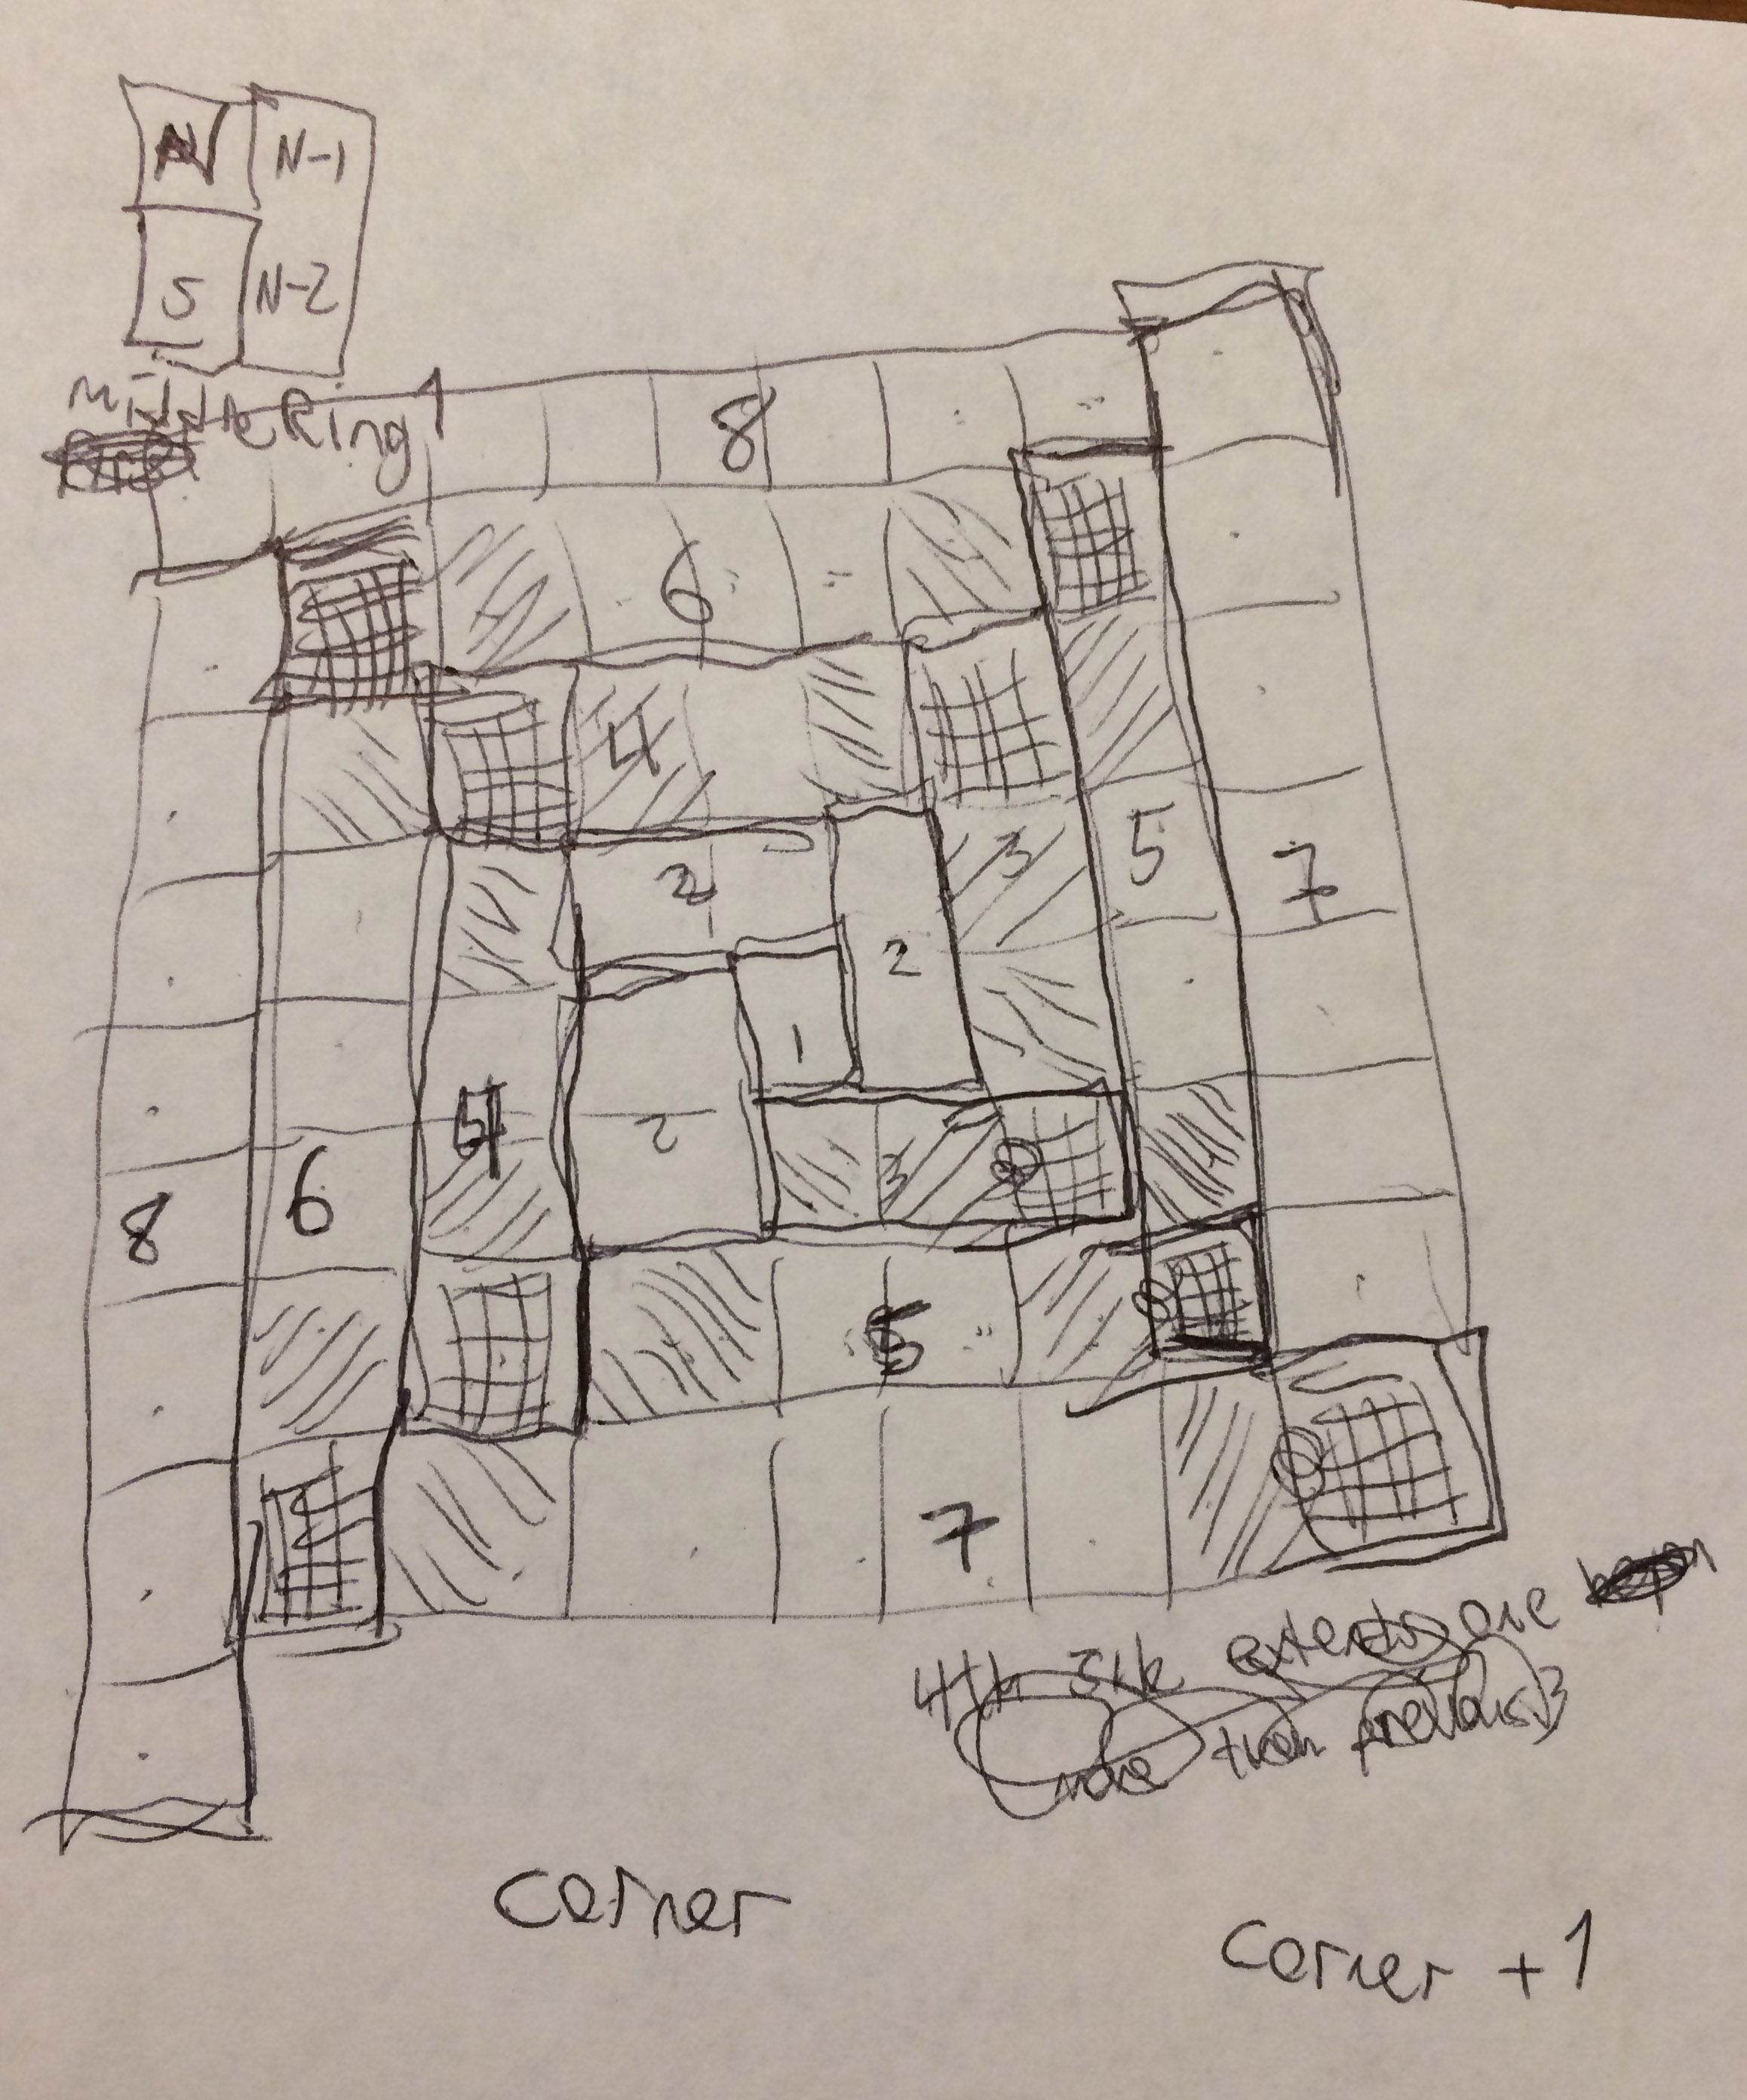 N N-1
5 N-2
Middle Ring 1
8
6
4
2
3
5
7
2
1
4
2
3
6
8
5
7
4th 5th extends one
more than previous
corner
corner +1